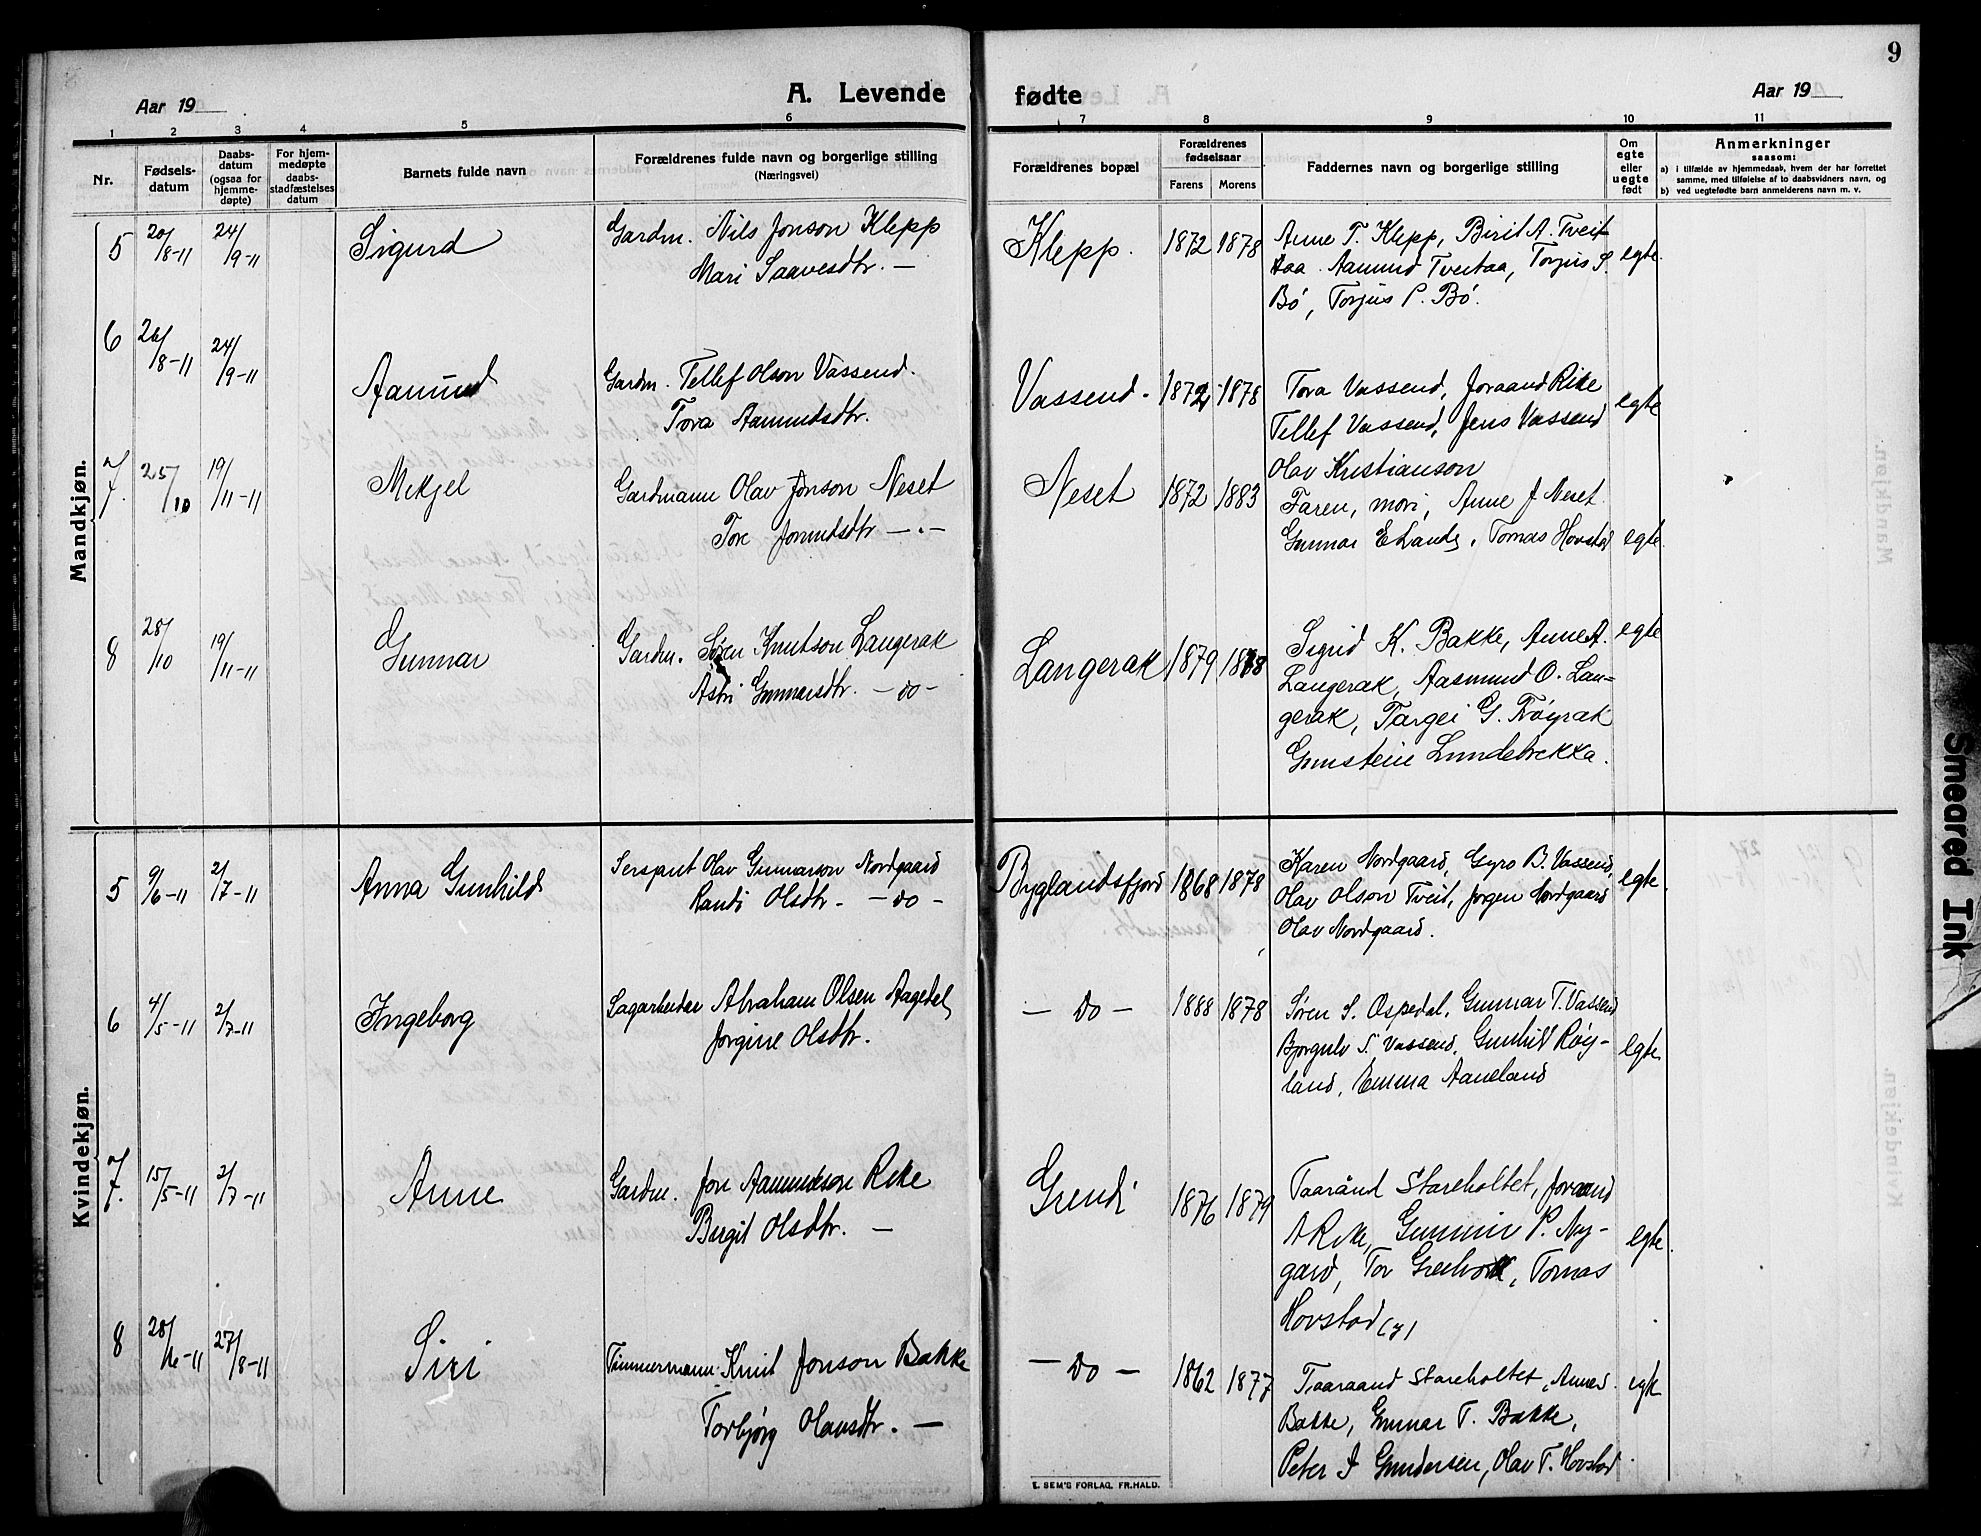 9
Aar 19
A. Levende fødte
Aar 19
1 2 3 4 5 6 7 8 9 10 11
Nr.
Fødsels-
datum
Daabs-
datum
(ogsaa for
hjemme-
døpte)
For hjem-
medøpte
daabs-
stadfæstelses
datum
Barnets fulde navn
Forældrenes fulde navn og borgerlige stilling
(Næringsvei)
Forældrenes bopæl
Forældrenes
fødselsaar
Farens Morens
Faddernes navn og borgerlige stilling
Om
egte
eller
uegte
født
Anmerkninger
saasom:
a) i tilfælde av hjemmedaab, hvem der har forrettet
samme, med tilføielse af to daabsvidners navn, og
b) ved uegtefødte barn anmelderens navn m. v.
Mandkjøn.
5 20/8-11 24/9-11 Sigurd Gardm. Nils Jonson Klepp
Mari Saavesdtr. —
Klepp. 1872 1878
Anne T. Klepp, Birit A. Tveit
taa. Aamund Tveitaa, Torjus S.
Bö, Torjus P. Bö.
egte.
6 26/8-11 24/9-11 Aamund Gardm. Tellef Olson Vassend.
Tora Aamundsdtr.
Vassend. 1872 1878
Tora Vassend, Joraand Rike
Tellef Vassend, Jens Vassend
Olav Kristianson
egte
7. 25/10 19/11-11 Mikjel Gardmann Olav Jonson Neset
Tore Jonundsdtr —.—
Neset 1872 1883
Faren, mori, Anne J Neset
Gunnar Eslands, Tomas Hovstad
egte.
8 28/10 19/11-11 Gunnar Gardm. Søren Knutson Langerak
Astri Gunnarsdtr. —do—
Langerak 1879 1878
Sigrid K. Bakke, Anne A.
Langerak, Aasmund O. Lan=
gerak, Targei G. Fröyrak
Gunstein Lundebrekka.
egte
Kvindekjøn.
5 9/6-11 2/7-11 Anna Gunhild Sersjant Olav Gunnarson Nordgaard
Randi Olsdtr. —do—
Byglandsfjord 1868 1878
Karen Nordgaard, Gyro B. Vassend,
Olav Olson Tveit, Jørgen Nordgaard
Olav Nordgaard.
egte.
6 4/5-11 2/7-11 Ingeborg Sagarbeider Abraham Olsen Aagedal,
Jorgine Olsdtr.
— do — 1888 1878
Søren S. Ospedal, Gunnar T. Vassend
Bjorgulv S. Vassend, Gunhild Røy-
land, Emma Aaneland
egte.
7. 15/5-11 2/7-11 Anne Gardm. Jon Aamundson Rike
Birgit Olsdtr. —
Grendi 1876 1879
Taarånd Stareholtet, Joraand
A Rike, Gunnvir P. Ny-
gard, Tor, Tomas
Hovstad
egte.
8 28/ -11 27/8-11 Siri Timmermann. Knut Jonson Bakke
Torbjörg Olavsdtr. —
— do — 1862 1877
Taaraand Stareholtet,
Bakke, Gunnar T. Bakke,
Peter I Gundersen, Olav T. Hovstad
egte
E. SEM'S FORLAG, FR.HALD.
Smeared Ink